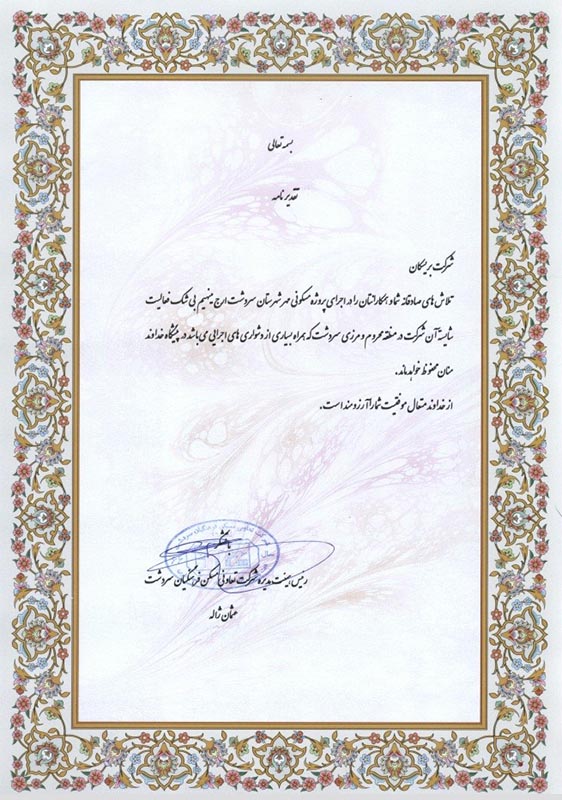 بسمه تعالی
تقدیر نامه
شرکت برسکان
تلاش های صادقانه شما و همکارانتان را در اجرای پروژه مسکونی مهر شهرستان سردشت ارج مینهیم بی شک فعالیت
شایسته آن شرکت در منطقه محروم و مرزی سردشت که همراه بسیاری از دشواری های اجرایی می باشد در پیشگاه خداوند
منان محفوظ خواهد ماند.
از خداوند متعال موفقیت شما را آرزومند است.
باتشکر
رئیس هیئت مدیره شرکت تعاونی مسکن فرهنگیان سردشت
عثمان ژاله